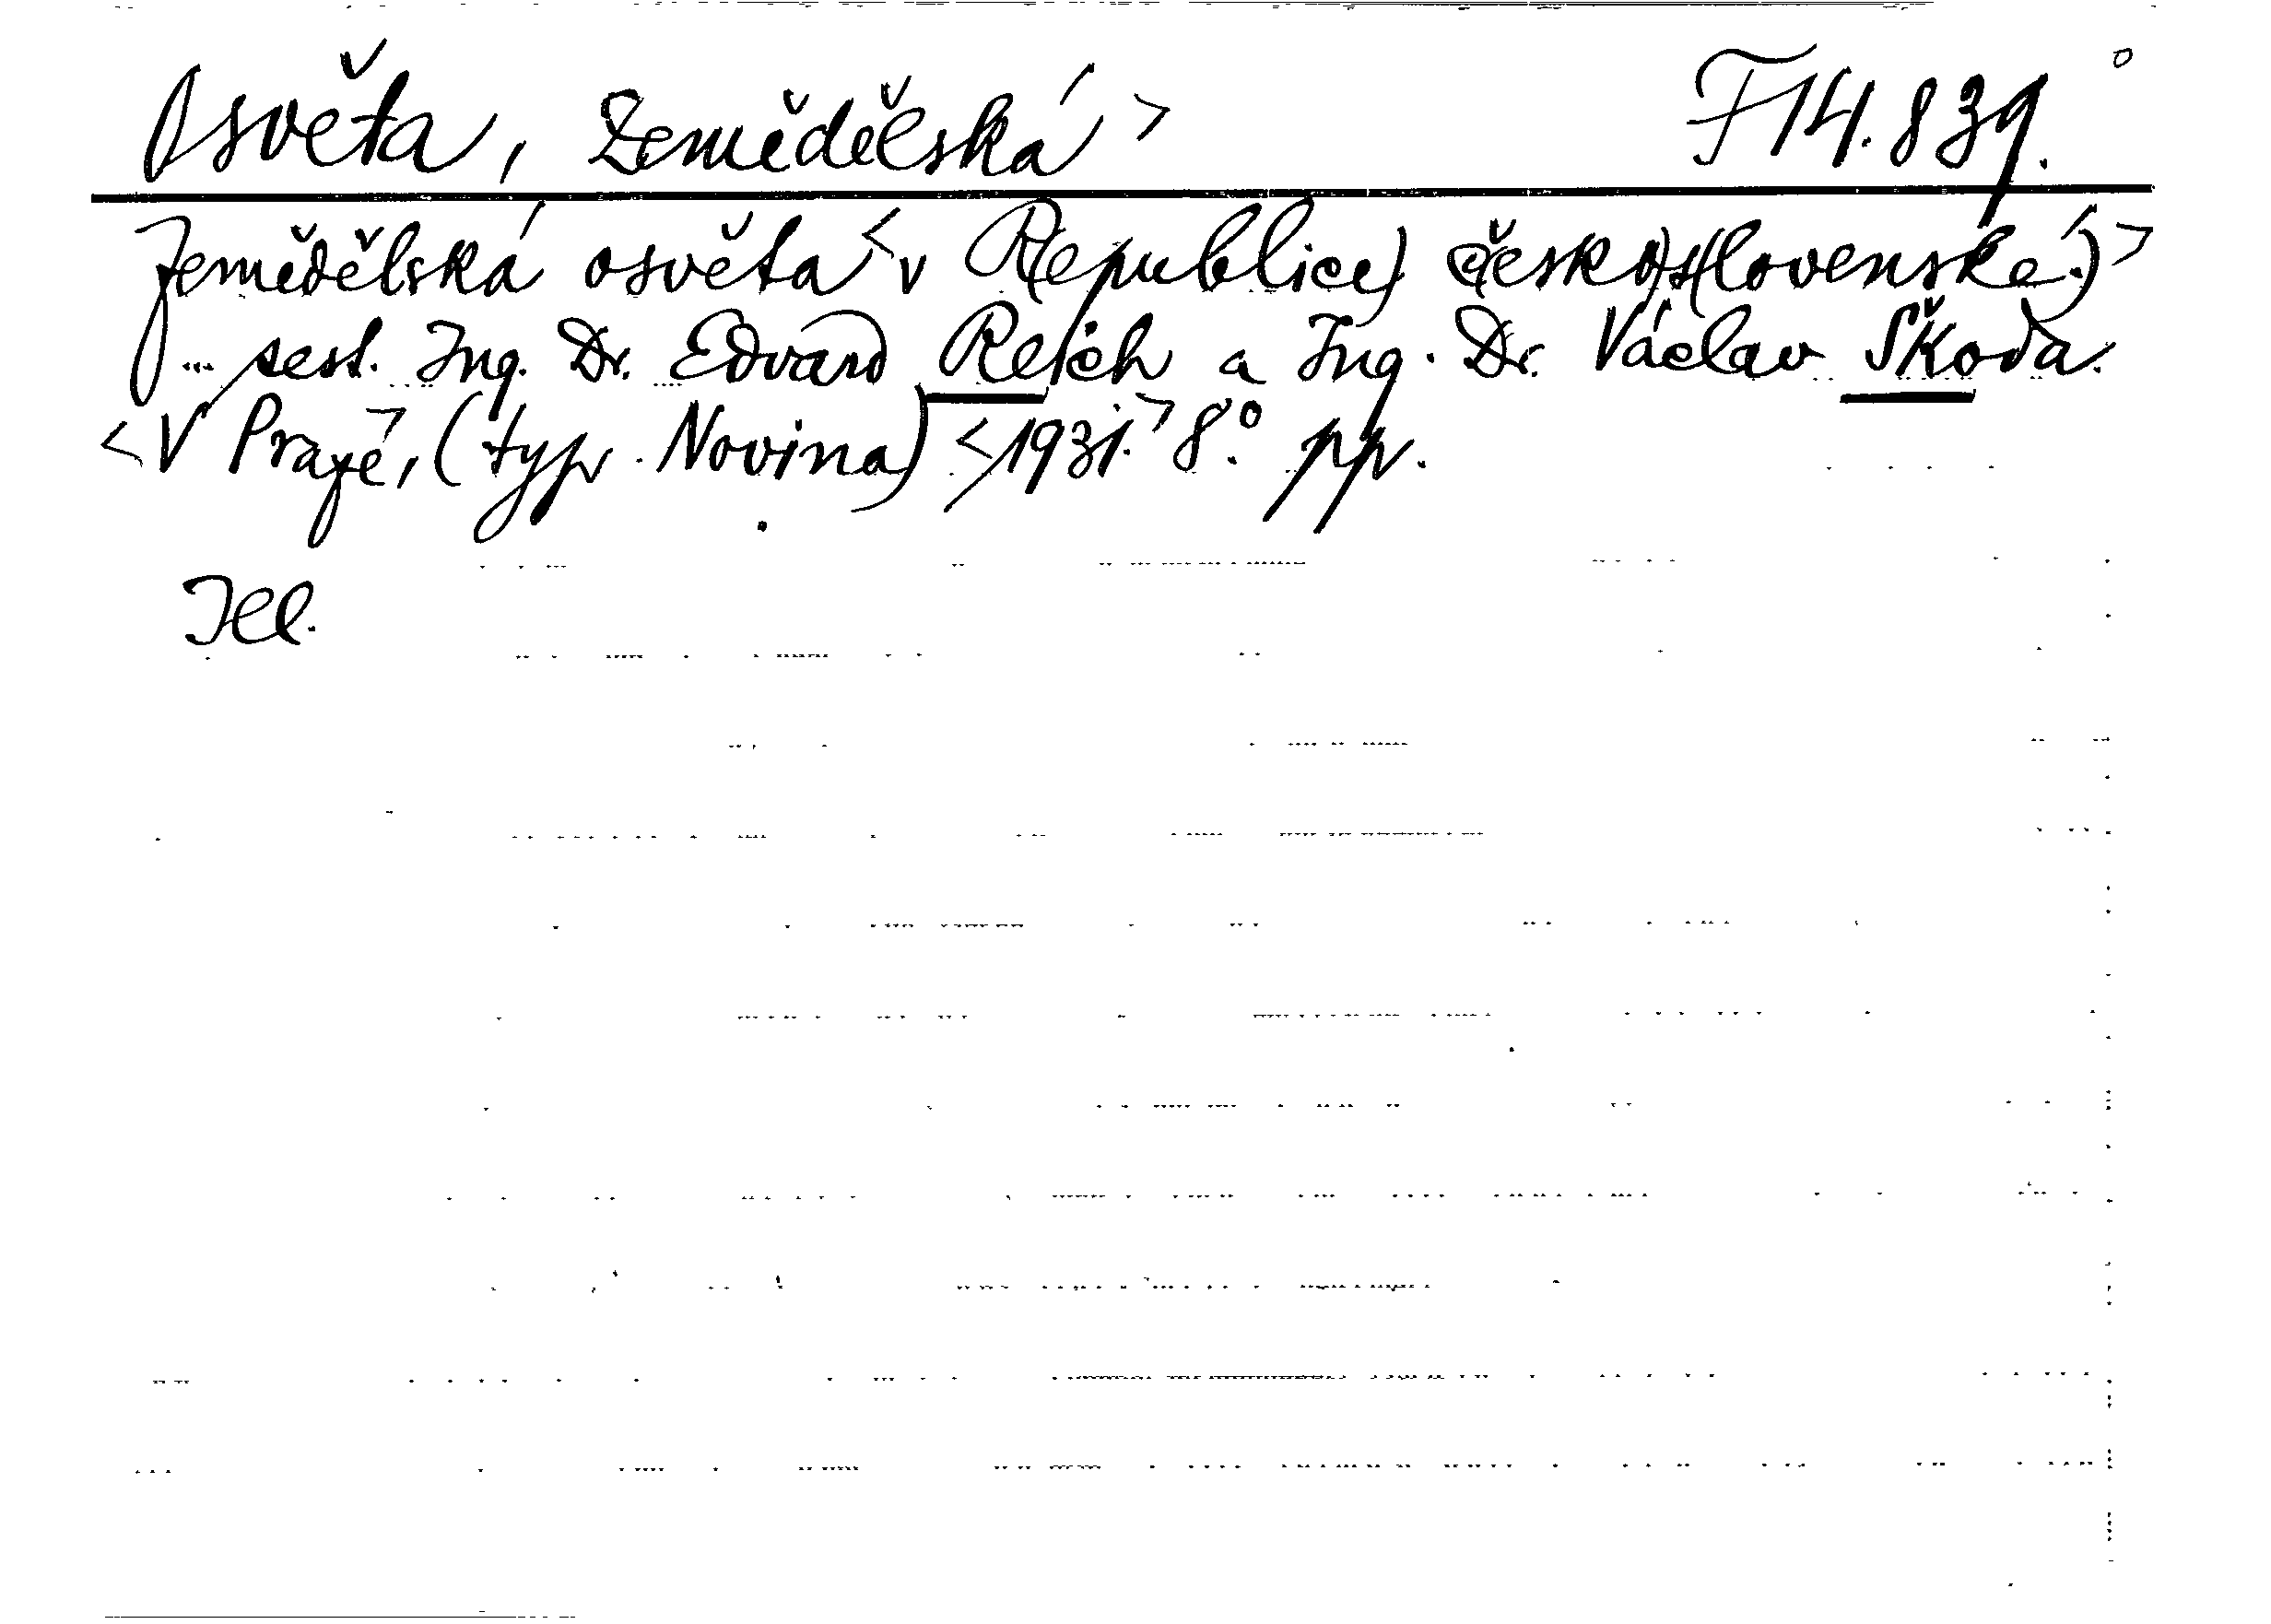 Osvěta, Zemědělská > F 14.839.°
Zemědělská osvěta < v R(epublice) č(esko)s(lovenské.) >
... sest. Ing. Dr. Edvard Reich a Ing. Dr. Václav Škoda.
< V Praze, > (typ. Novina) < 1931. > 8°. pp.
Ill.